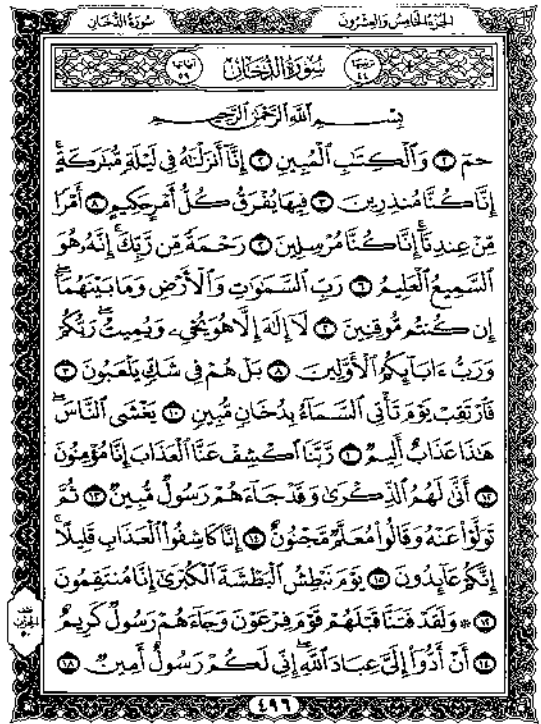 الجزء الخامس والعشرون
سورة الدخان
ترتيبها ٤٤ سُورَةُ الدُّخَانِ آياتها ٥٩
بِسْمِ ٱللَّهِ ٱلرَّحْمَٰنِ ٱلرَّحِيمِ
حمٓ وَٱلْكِتَٰبِ ٱلْمُبِينِ ٢ إِنَّآ أَنزَلْنَٰهُ فِى لَيْلَةٍ مُّبَٰرَكَةٍ ۚ
إِنَّا كُنَّا مُنذِرِينَ ٣ فِيهَا يُفْرَقُ كُلُّ أَمْرٍ حَكِيمٍ أَمْرًا
مِّنْ عِندِنَآ ۚ إِنَّا كُنَّا مُرْسِلِينَ رَحْمَةً مِّن رَّبِّكَ ۚ إِنَّهُۥ هُوَ
ٱلسَّمِيعُ ٱلْعَلِيمُ ٦ رَبِّ ٱلسَّمَٰوَٰتِ وَٱلْأَرْضِ وَمَا بَيْنَهُمَآ ۖ
إِن كُنتُم مُّوقِنِينَ لَآ إِلَٰهَ إِلَّا هُوَ يُحْىِۦ وَيُمِيتُ ۖ رَبُّكُمْ
وَرَبُّ ءَابَآئِكُمُ ٱلْأَوَّلِينَ ٨ بَلْ هُمْ فِى شَكٍّ يَلْعَبُونَ
فَٱرْتَقِبْ يَوْمَ تَأْتِى ٱلسَّمَآءُ بِدُخَانٍ مُّبِينٍ ١٠ يَغْشَى ٱلنَّاسَ ۖ
هَٰذَا عَذَابٌ أَلِيمٌ رَّبَّنَا ٱكْشِفْ عَنَّا ٱلْعَذَابَ إِنَّا مُؤْمِنُونَ
١٢ أَنَّىٰ لَهُمُ ٱلذِّكْرَىٰ وَقَدْ جَآءَهُمْ رَسُولٌ مُّبِينٌ ١٣ ثُمَّ
تَوَلَّوْا۟ عَنْهُ وَقَالُوا۟ مُعَلَّمٌ مَّجْنُونٌ ١٤ إِنَّا كَاشِفُوا۟ ٱلْعَذَابِ قَلِيلًا ۚ
إِنَّكُمْ عَآئِدُونَ ١٥ يَوْمَ نَبْطِشُ ٱلْبَطْشَةَ ٱلْكُبْرَىٰٓ إِنَّا مُنتَقِمُونَ
۞ وَلَقَدْ فَتَنَّا قَبْلَهُمْ قَوْمَ فِرْعَوْنَ وَجَآءَهُمْ رَسُولٌ كَرِيمٌ
أَنْ أَدُّوٓا۟ إِلَىَّ عِبَادَ ٱللَّهِ ۖ إِنِّى لَكُمْ رَسُولٌ أَمِينٌ ١٨
٤٩٦